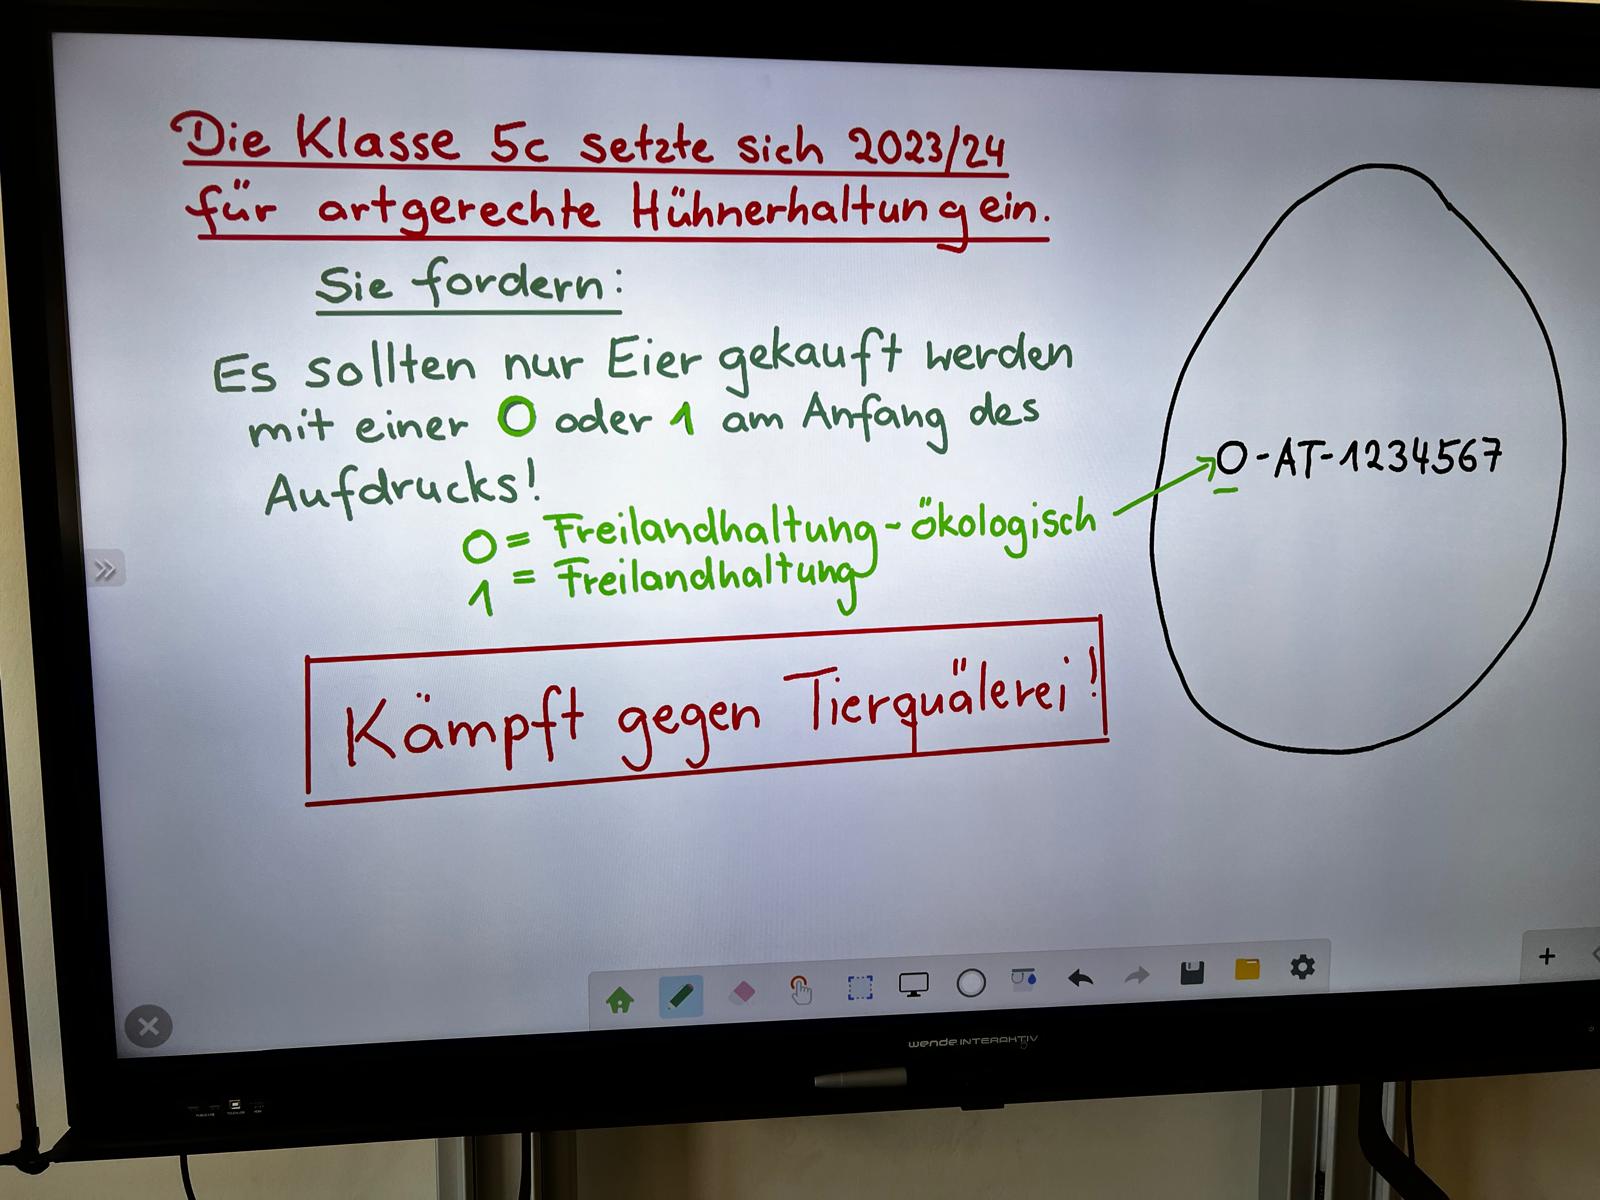 Die Klasse 5c setzte sich 2023/24
für artgerechte Hühnerhaltung ein.
Sie fordern:
Es sollten nur Eier gekauft werden
mit einer 0 oder 1 am Anfang des
Aufdrucks!
0 = Freilandhaltung - ökologisch
1 = Freilandhaltung
0-AT-1234567
Kämpft gegen Tierquälerei!
wende INTERAKTIV